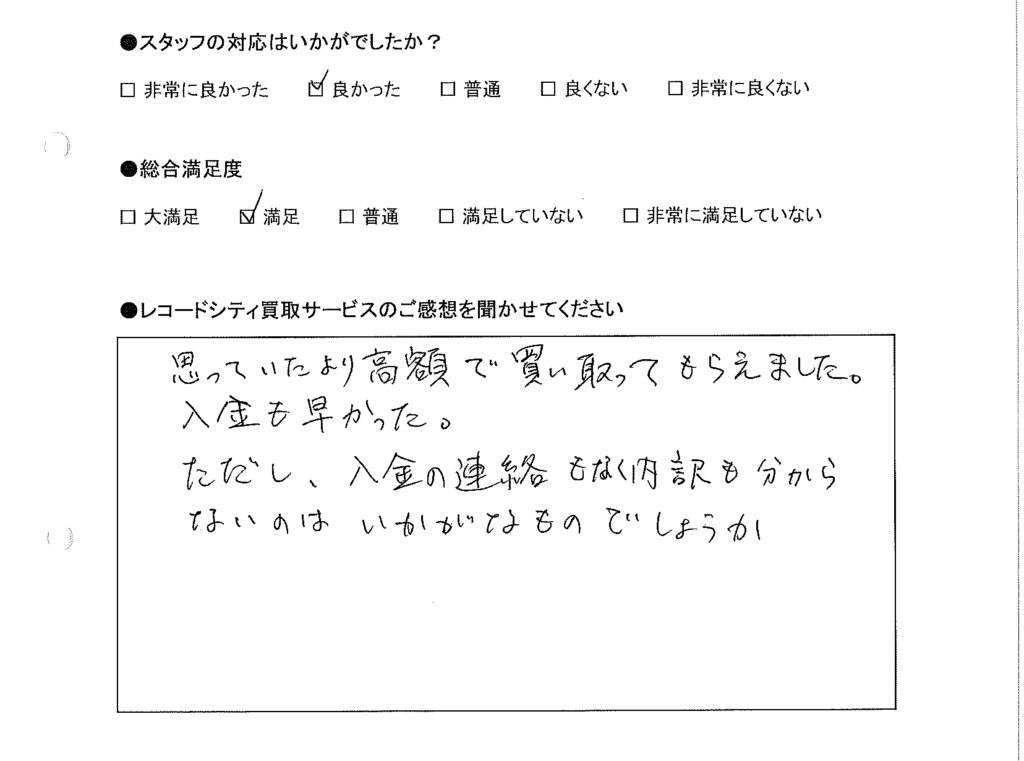 ●スタッフの対応はいかがでしたか？
□ 非常に良かった ☑ 良かった □ 普通 □ 良くない □ 非常に良くない
●総合満足度
□ 大満足 ☑ 満足 □ 普通 □ 満足していない □ 非常に満足していない
●レコードシティ買取サービスのご感想を聞かせてください
思っていたより高額で買い取ってもらえました。
入金も早かった。
ただし、入金の連絡もなく内訳も分から
ないのはいかがなものでしょうか